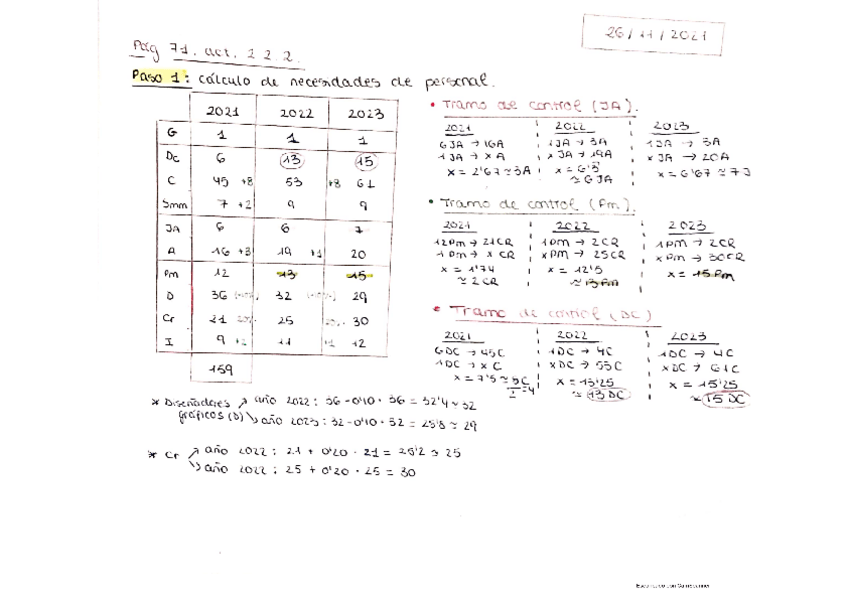 26/11/2021
Pág 71. act. 2.2.2.
Paso 1: cálculo de necesidades de personal.
2021 2022 2023
G 1 1 1
DC 6 13 15
C 45 +8 53 +8 61
Smm 7 +2 9 9
JA 6 6 7
A 16 +3 19 +1 20
Pm 12 13 15
D 36 32 29
Cr 21 25 30
I 9 +2 11 +1 12
159
• Tramo de control (JA).
2021 2022 2023
6JA → 16A 1JA → 3A 1JA → 3A
1JA → xA xJA → 19A xJA → 20A
x = 2'67 ≈ 3A x = 6'3 x = 6'67 ≈ 7J
≈ 6JA
• Tramo de control (Pm).
2021 2022 2023
12Pm → 21CR 1Pm → 2CR 1Pm → 2CR
1Pm → x CR xPm → 25CR xPm → 30CR
x = 1'74 x = 12'5 x = 15Pm
≈ 2CR ≈ 13Pm
• Tramo de control (DC)
2021 2022 2023
6DC → 45C 1DC → 4C 1DC → 4C
1DC → xC xDC → 53C xDC → 61C
x = 7'5 ≈ x = 13'25 x = 15'25
≈ 13DC ≈ 15DC
* Diseñadores ↗ año 2022: 36 - 0'10 · 36 = 32'4 ≈ 32
gráficos (D) ↘ año 2023: 32 - 0'10 · 32 = 28'8 ≈ 29
* Cr ↗ año 2022: 21 + 0'20 · 21 = 25'2 ≈ 25
↘ año 2022: 25 + 0'20 · 25 = 30
Escaneado con CamScanner